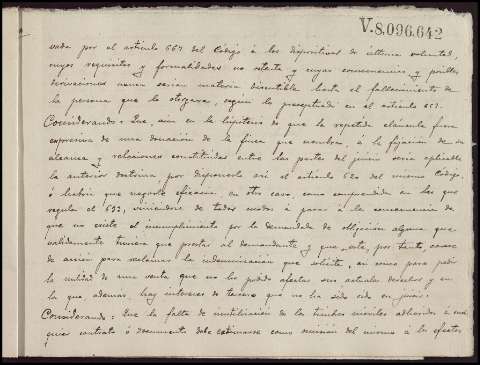 V.8,096,642
vada por el artículo 667 del Código á las dispositivas de última voluntad,
cuyos requisitos y formalidades no ostenta y cuyas consecuencias y posibles
derivaciones nunca serían materia discutible hasta el fallecimiento de
la persona que la otorgara, según lo preceptuado en el artículo 657.
Considerando: Que, aún en la hipótesis de que la repetida cláusula fuera
expresiva de una donación de la finca que nombra, á la fijación de su
alcance y relaciones constituidas entre las partes del juicio sería aplicable
la anterior doctrina por disponerlo así el artículo 620 del mismo Código,
ó habría que negarle eficacia en otro caso, como comprendida en las que
regula el 633, viniéndose de todos modos á parar á la consecuencia de
que no existe el incumplimiento por la demandada de obligación alguna que
validamente tuviera que prestar al demandante y que este, por tanto, carece
de acción para reclamar la indemnización que solicita, así como para pedir
la nulidad de una venta que no ha podido afectar sus actuales derechos y en
la que, además, hay intereses de tercero que no ha sido oido en juicio.
Considerando: Que la falta de inutilización de los timbres móviles adheridos á cual
quier contrato ó documento debe estimarse como omisión del mismo á los efectos